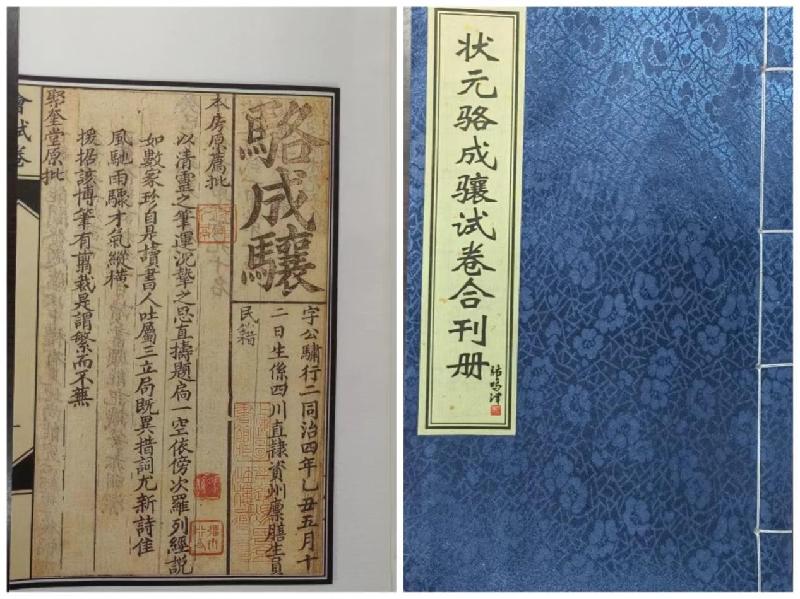 駱成驤
字公驌行二同治四年乙丑五月十
二日生係四川直隸資州廩膳生員
民籍
本房原薦批
以清靈之筆運沉摯之思直擣題扃一空依傍次羅列經說
如數家珍自是讀書人吐屬三立局既異措詞尤新詩佳
風馳雨驟才氣縱橫
援据該博筆有翦裁是謂繁而不蕪
聚奎堂原批
會試卷
状元骆成骧试卷合刊册